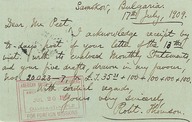 Samokov, Bulgaria
17th July, 1909.
Dear Mr. Peet.
I acknowledge receipt by
to-day's post of your letter of the 13th
inst. with its enclosed Monthly Statements
and your five drafts, drawn in my favour
Nos. 20023-7, for £T.35+100+100+100+100.
With cordial regards,
Yours very sincerely
Robt. Thomson.